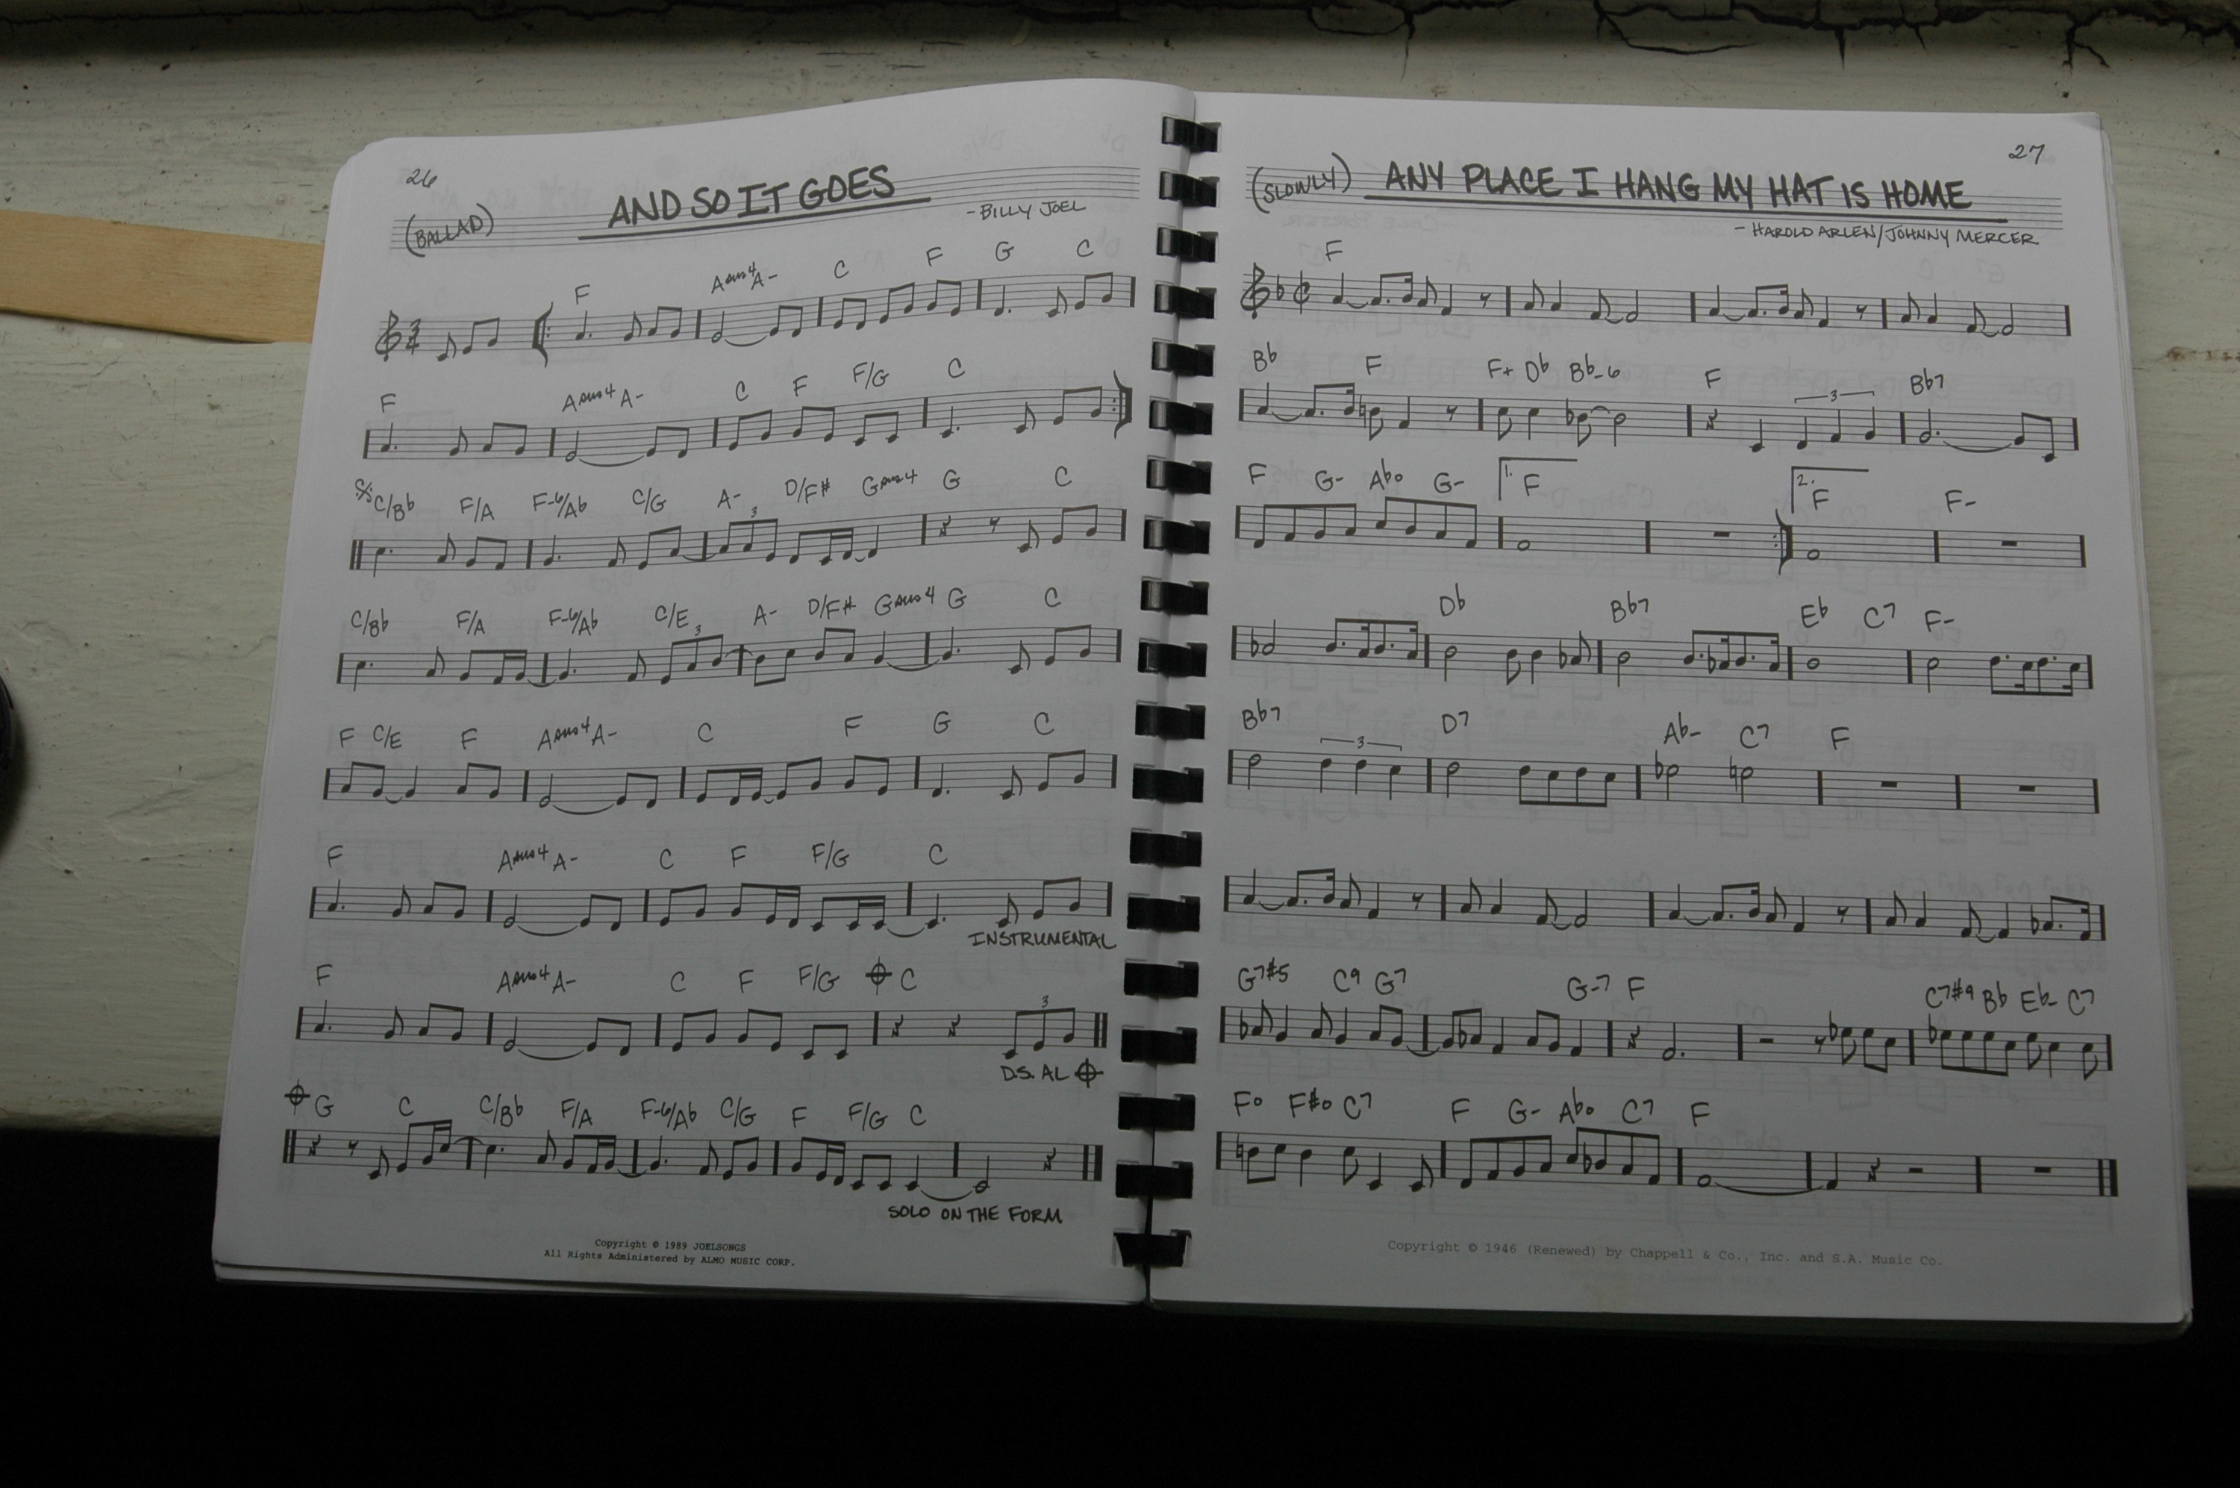 26
AND SO IT GOES
(BALLAD)
- BILLY JOEL
F Asus4 A- C F G C
F Asus4 A- C F F/G C
C/Bb F/A F-6/Ab C/G A- 3 D/F# Gsus4 G C
C/Bb F/A F-6/Ab C/E 3 A- D/F# Gsus4 G C
F C/E F Asus4 A- C F G C
F Asus4 A- C F F/G C
INSTRUMENTAL
F Asus4 A- C F F/G C
3
D.S. AL
G C C/Bb F/A F-6/Ab C/G F F/G C
SOLO ON THE FORM
Copyright © 1989 JOELSONGS
All Rights Administered by ALMO MUSIC CORP.
27
(SLOWLY) ANY PLACE I HANG MY HAT IS HOME
- HAROLD ARLEN/JOHNNY MERCER
F
Bb F F+ Db Bb-6 F Bb7
3
F G- Abo G- 1. F 2. F F-
Db Bb7 Eb C7 F-
Bb7 D7 Ab- C7 F
3
G7#5 C9 G7 G-7 F C7#9 Bb Eb- C7
Fo F#o C7 F G- Abo C7 F
Copyright © 1946 (Renewed) by Chappell & Co., Inc. and S.A. Music Co.